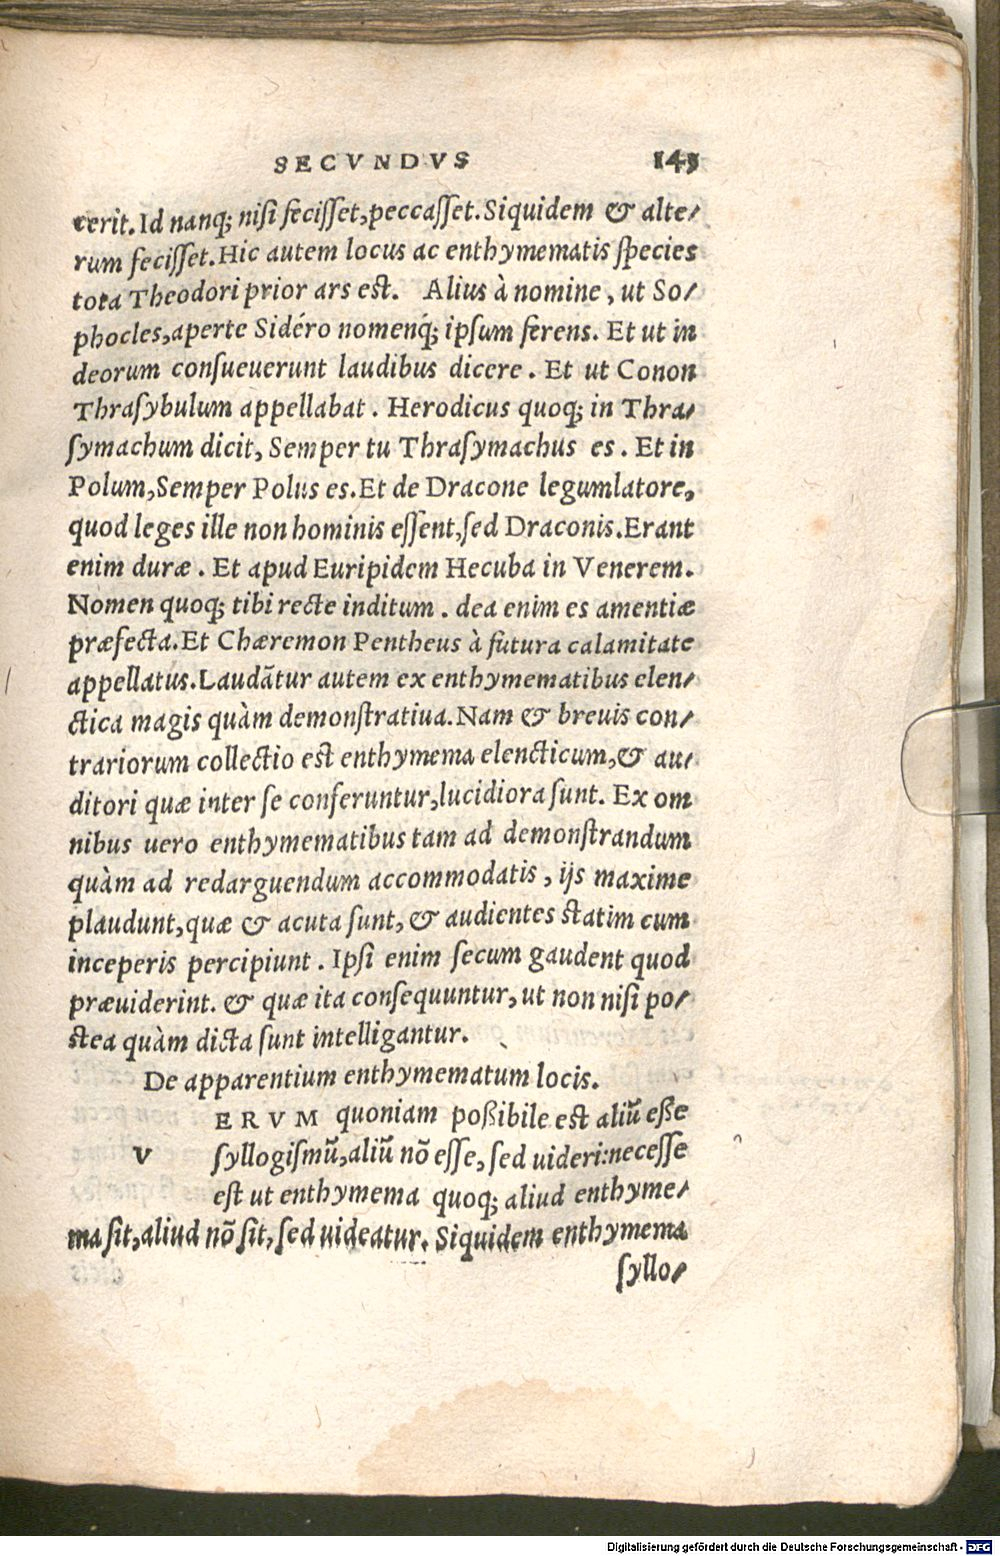 SECVNDVS 143
cerit. Id nanq; nisi fecisset, peccasset. Siquidem & alte/
rum fecisset. Hic autem locus ac enthymematis species
tota Theodori prior ars est. Alius à nomine, ut So/
phocles, aperte Sidéro nomenq́; ipsum ferens. Et ut in
deorum consueuerunt laudibus dicere. Et ut Conon
Thrasybulum appellabat. Herodicus quoq; in Thra/
symachum dicit, Semper tu Thrasymachus es. Et in
Polum, Semper Polus es. Et de Dracone legumlatore,
quod leges ille non hominis essent, sed Draconis. Erant
enim duræ. Et apud Euripidem Hecuba in Venerem.
Nomen quoq; tibi recte inditum. dea enim es amentiæ
præfecta. Et Chæremon Pentheus à futura calamitate
appellatus. Laudãtur autem ex enthymematibus elen/
ctica magis quàm demonstratiua. Nam & breuis con/
trariorum collectio est enthymema elencticum, & au/
ditori quæ inter se conferuntur, lucidiora sunt. Ex om
nibus uero enthymematibus tam ad demonstrandum
quàm ad redarguendum accommodatis, ijs maxime
plaudunt, quæ & acuta sunt, & audientes statim cum
inceperis percipiunt. Ipsi enim secum gaudent quod
præuiderint. & quæ ita consequuntur, ut non nisi po/
stea quàm dicta sunt intelligantur.
De apparentium enthymematum locis.
V ERVM quoniam poßibile est aliũ eße
syllogismũ, aliũ nõ esse, sed uideri: necesse
est ut enthymema quoq; aliud enthyme/
ma sit, aliud nõ sit, sed uideatur. Siquidem enthymema
syllo/
Digitalisierung gefördert durch die Deutsche Forschungsgemeinschaft - DFG